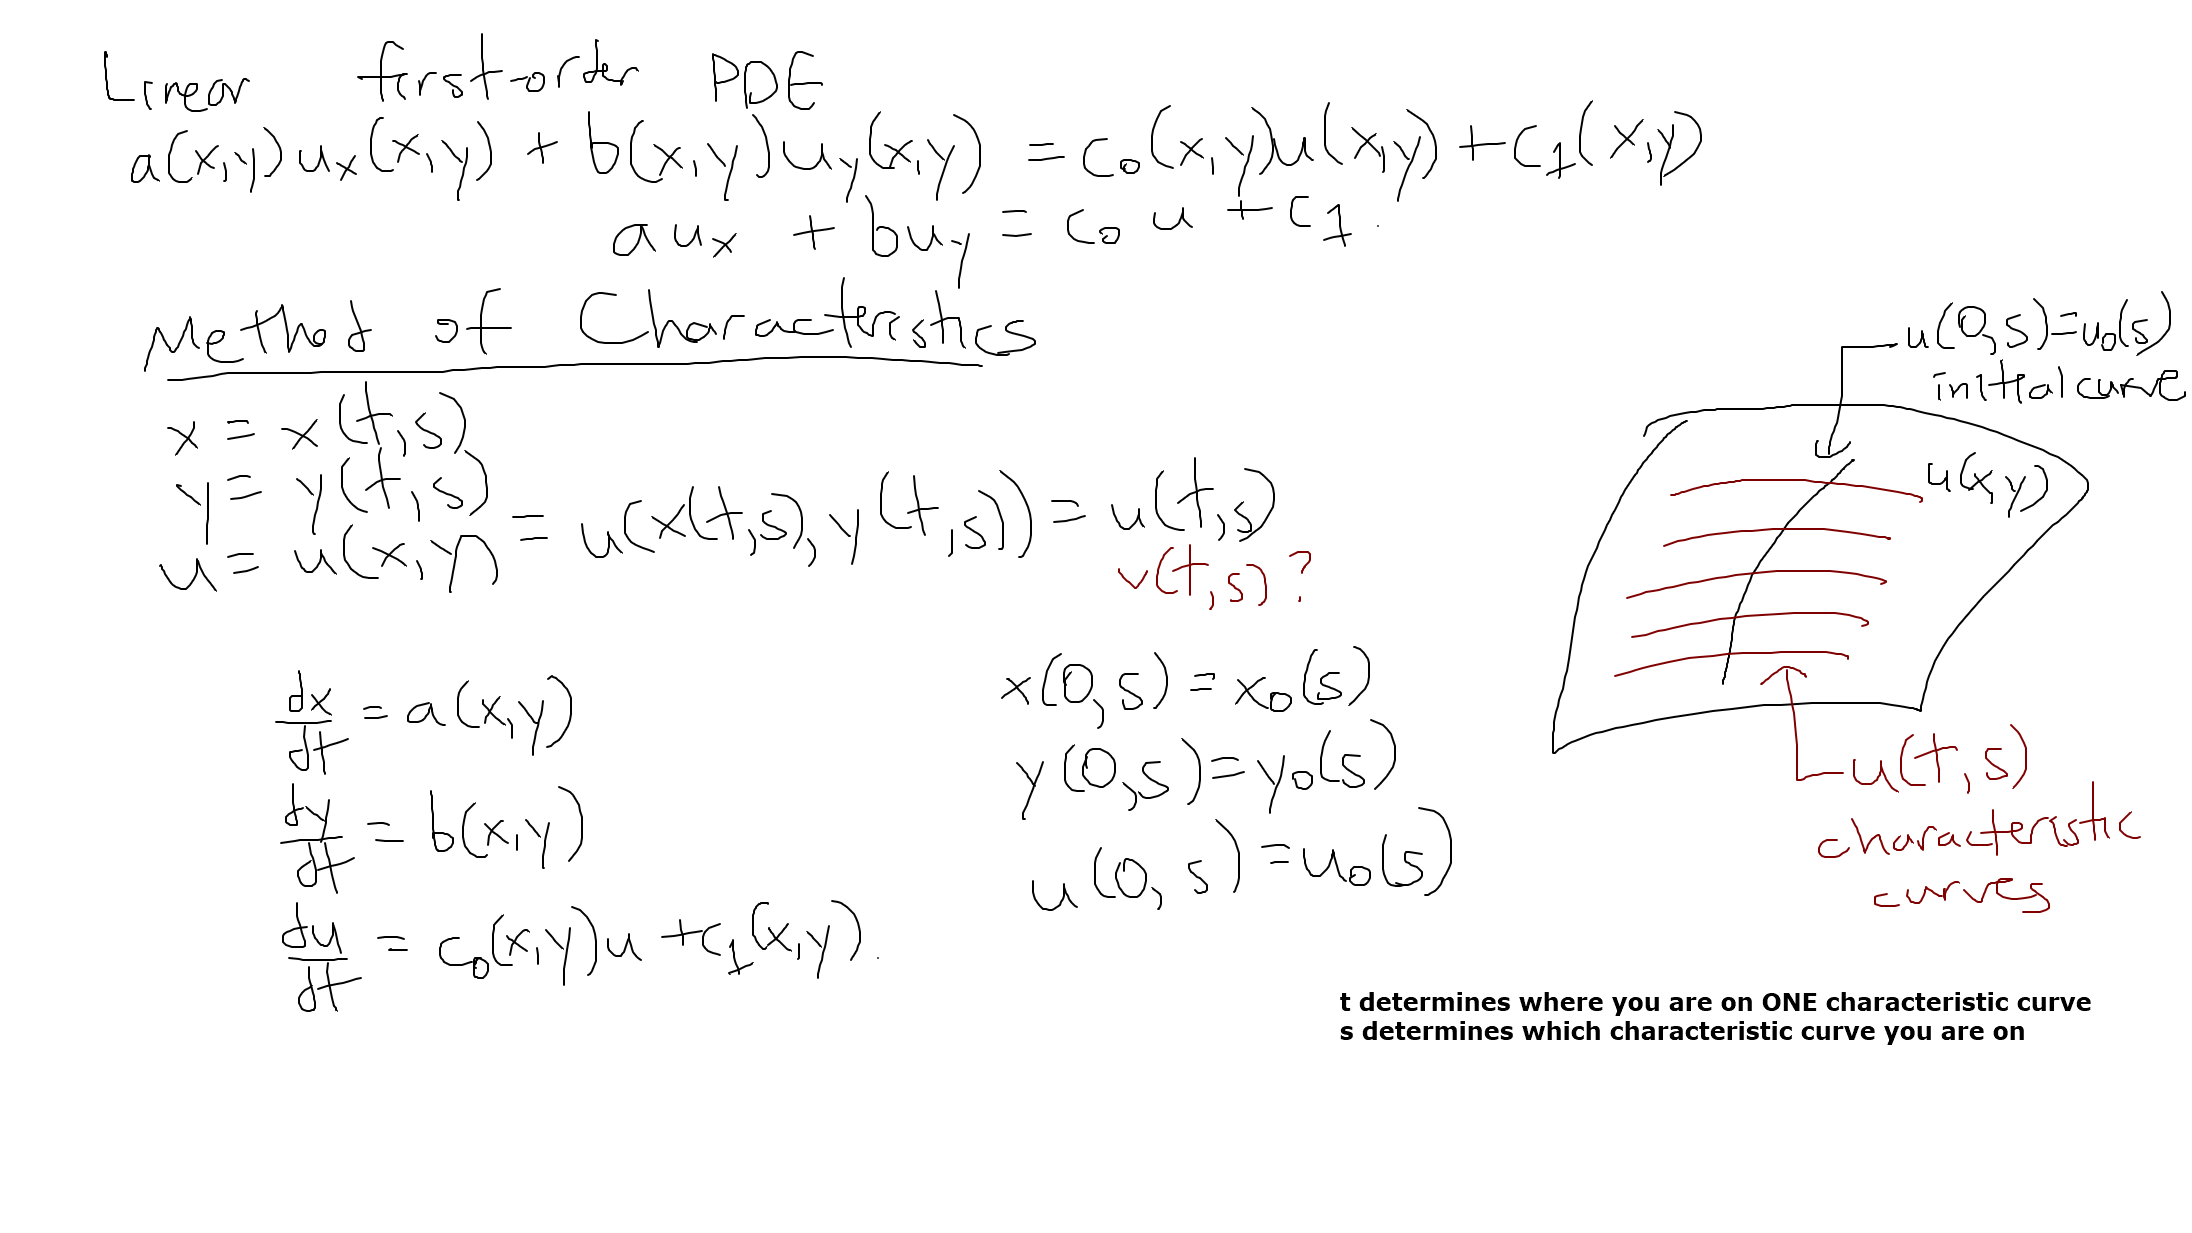 Linear first-order PDE
a(x,y)uₓ(x,y) + b(x,y)u_y(x,y) = c₀(x,y)u(x,y) + c₁(x,y)
auₓ + bu_y = c₀u + c₁.
Method of Characteristics
x = x(t,s)
y = y(t,s)
u = u(x,y) = u(x(t,s), y(t,s)) = u(t,s)
v(t,s)?
dx/dt = a(x,y)
dy/dt = b(x,y)
du/dt = c₀(x,y)u + c₁(x,y).
x(0,s) = x₀(s)
y(0,s) = y₀(s)
u(0,s) = u₀(s)
u(0,s) = u₀(s)
initial curve
u(x,y)
u(t,s)
characteristic
curves
t determines where you are on ONE characteristic curve
s determines which characteristic curve you are on